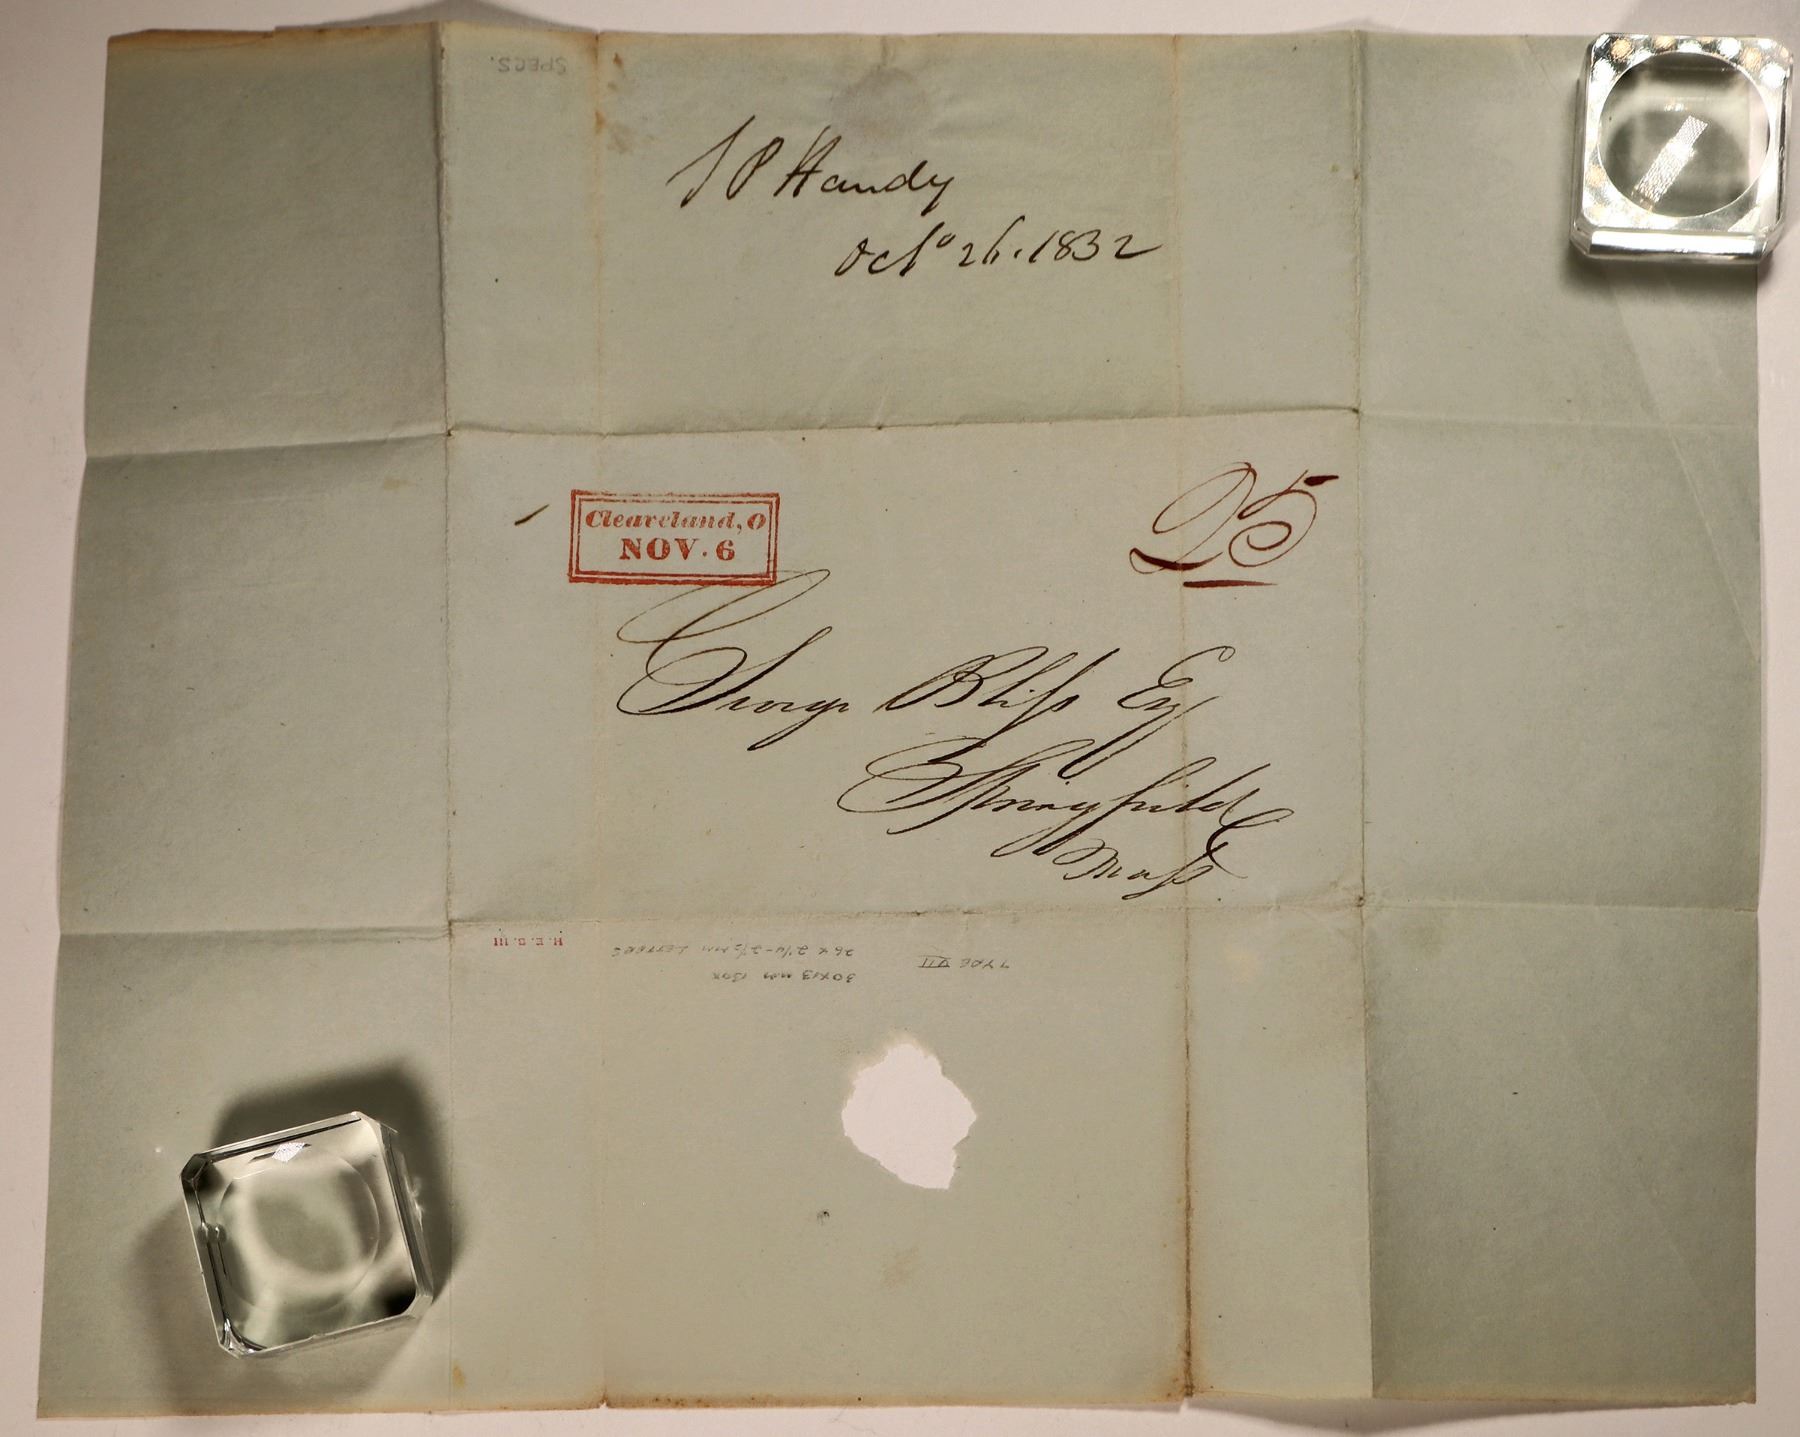 SPECS.
T P Handy
Octo 26. 1832
25
Cleaveland, O
NOV. 6
George Bliss Esq
Springfield
Mass
H. E. S. III
TYPE VII
26 x 2 1/4 - 2 1/2 MM LETTERS
30x13 mm BOX